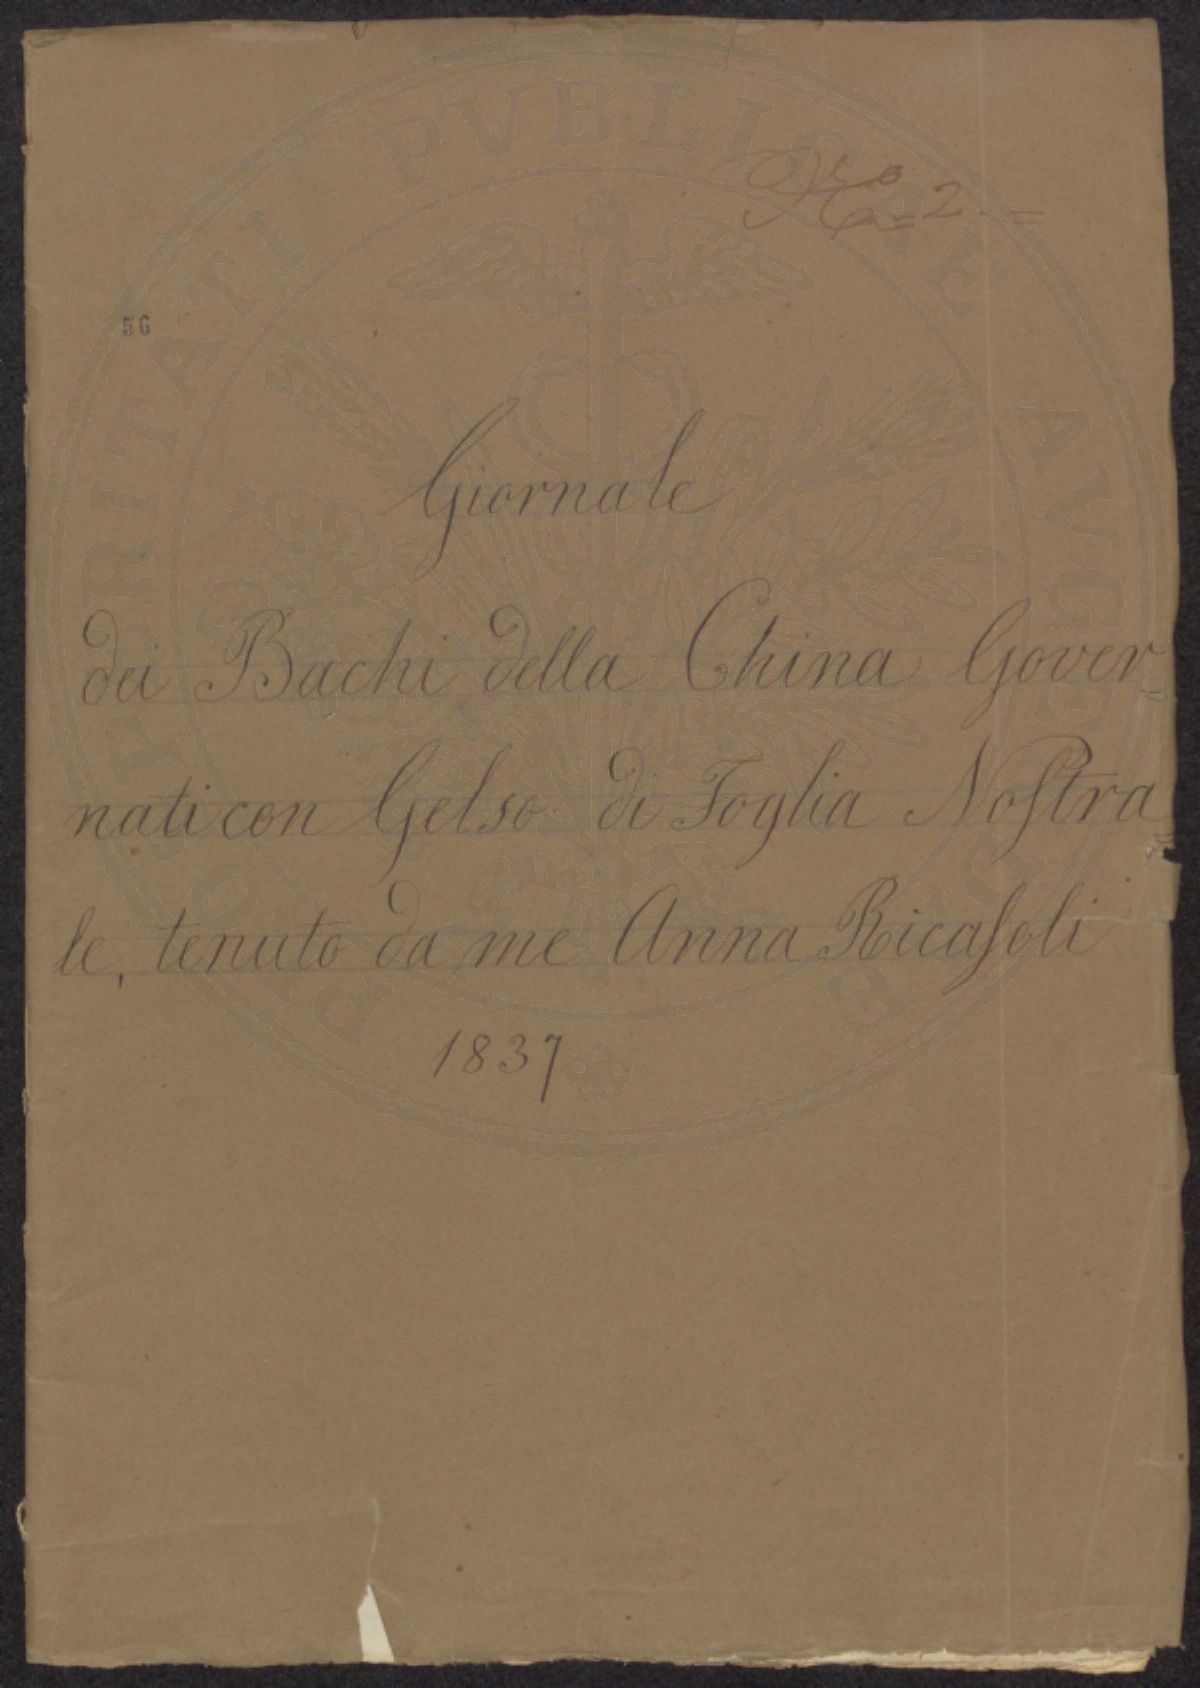 = 2 =
56
Giornale
dei Bachi della China Gover=
nati con Gelso di Foglia Noſtra=
le, tenuto da me Anna Ricaſoli
1837
PROSPERITATI PVBLICAE AVGENDAE